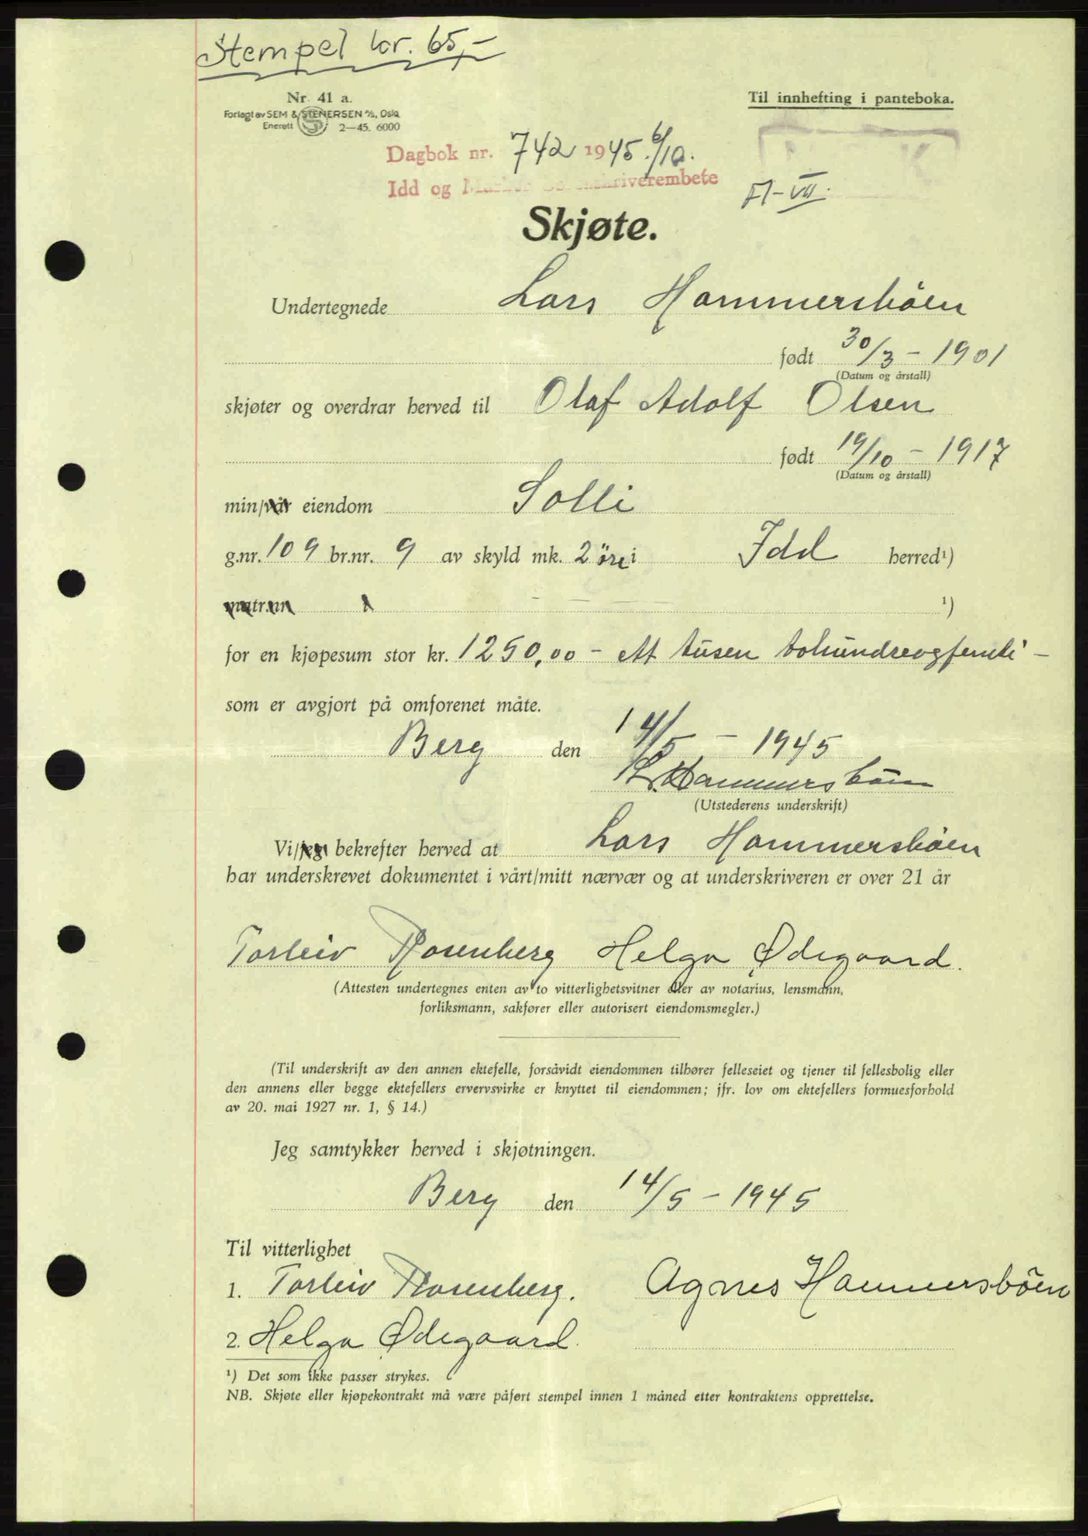 Stempel kr. 65,-
Nr. 41 a.
Forlagt av SEM & STENERSEN A/S, Oslo
Enerett 2-45. 6000
Til innhefting i panteboka.
Dagbok nr. 742 1945 6/10.
Idd og Marker Sorenskriverembete
A-VII.
Skjøte.
Undertegnede Lars Hammersbøen
født 30/3 - 1901
(Datum og årstall)
skjøter og overdrar herved til Olaf Adolf Olsen
født 19/10 - 1917
(Datum og årstall)
min/vår eiendom Solli
g.nr. 109 br.nr. 9 av skyld mk. 2 øre i Idd herred¹)
matr.nr. ¹)
for en kjøpesum stor kr. 1250,00 - Et tusen tohundreogfemti -
som er avgjort på omforenet måte.
Berg den 14/5 - 1945
L. Hammersbøen
(Utstederens underskrift)
Vi/jeg bekrefter herved at Lars Hammersbøen
har underskrevet dokumentet i vårt/mitt nærvær og at underskriveren er over 21 år
Torleiv Rosenberg Helga Ødegaard.
(Attesten undertegnes enten av to vitterlighetsvitner eller av notarius, lensmann,
forliksmann, sakfører eller autorisert eiendomsmegler.)
(Til underskrift av den annen ektefelle, forsåvidt eiendommen tilhører felleseiet og tjener til fellesbolig eller
den annens eller begge ektefellers ervervsvirke er knyttet til eiendommen; jfr. lov om ektefellers formuesforhold
av 20. mai 1927 nr. 1, § 14.)
Jeg samtykker herved i skjøtningen.
Berg den 14/5 - 1945
Til vitterlighet
1. Torleiv Rosenberg. Agnes Hammersbøen
2. Helga Ødegaard.
¹) Det som ikke passer strykes.
NB. Skjøte eller kjøpekontrakt må være påført stempel innen 1 måned etter kontraktens opprettelse.